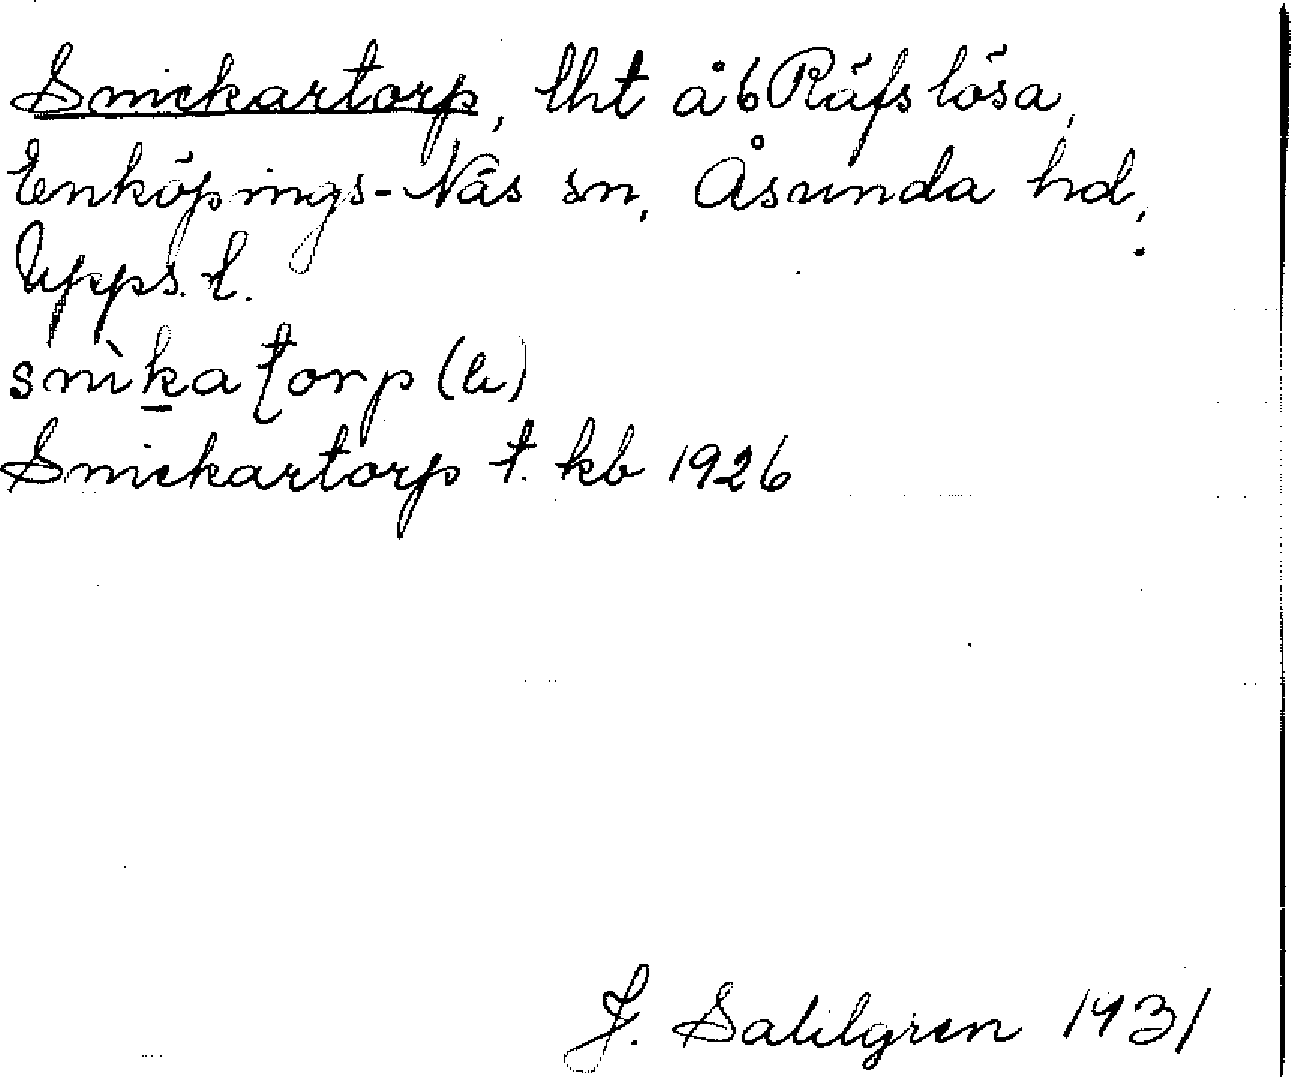 Snickartorp, lht å b Räfslösa,
Enköpings-Näs sn, Åsunda hd,
Upps. l.
snìka ƭorp (a)
Snickartorp t. kb 1926
J. Sahlgren 1931